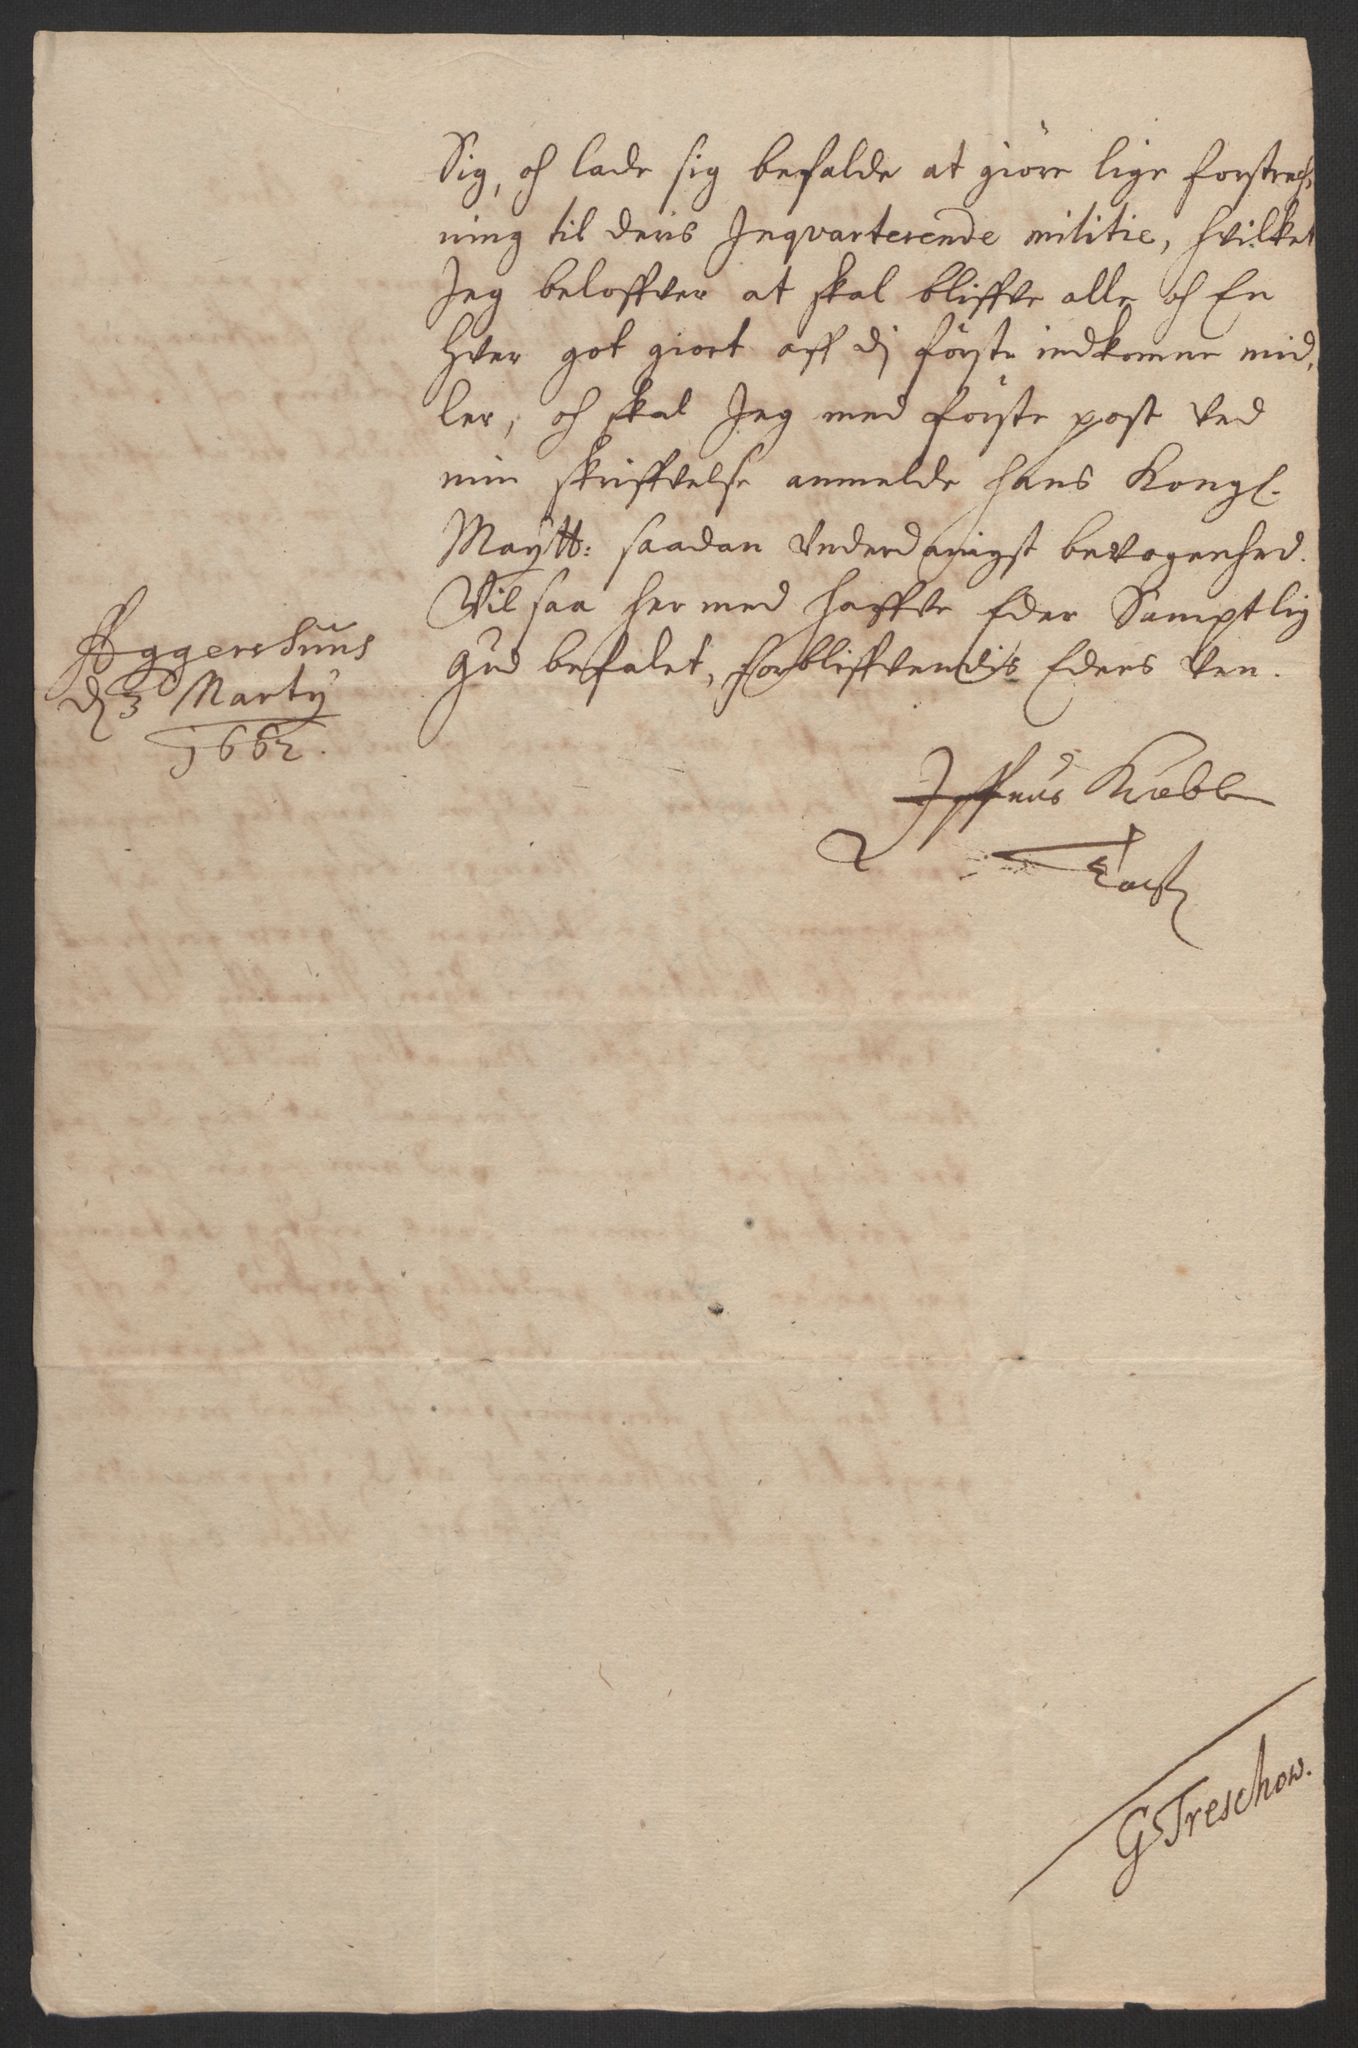 Sig, och lade sig befalde at giöre lige forstrech,
ning til deris Inqvarterende militie, hvilket
Jeg beloffver at skal bliffve alle och En
hver got giort aff di förste indkomne mid,
ler, och skal Jeg med förste post ved
min skriffvelse anmelde hans Kongl.
Maÿtt: saadan vnderdanigst bevogenhed.
Vil saa her med haffve Eder Samptlig
Gud befalet, forbliffvendis Eders ven.
Aggershuus
d 3 Martÿ
1662.
Iffuer Krabbe
G Treschow.